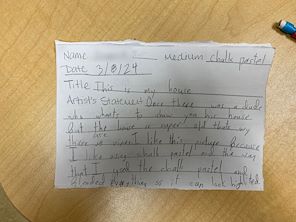 Name Medium chalk pastel
Date 3/8/24
Title This is my house
Artist's Statement Once there was a dude
who wants to draw you his house
But the house is super old that's why
there are vines. I like this picture Because
I like using chalk pastel and the way
that I used the chalk pastel and
blended everything so it can look